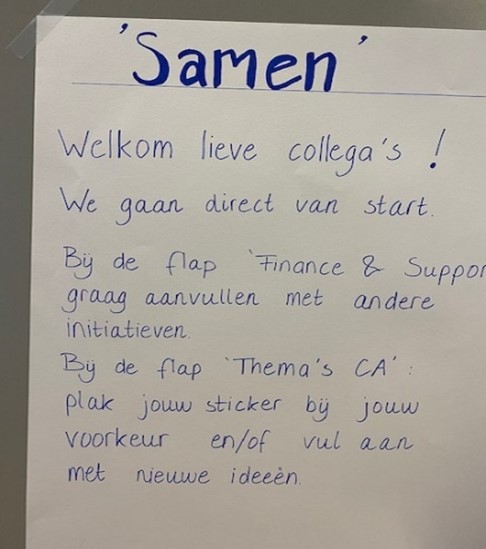 'Samen'
Welkom lieve collega's !
We gaan direct van start.
Bij de flap 'Finance & Suppor
graag aanvullen met andere
initiatieven.
Bij de flap 'Thema's CA' :
plak jouw sticker bij jouw
voorkeur en/of vul aan
met nieuwe ideeën.